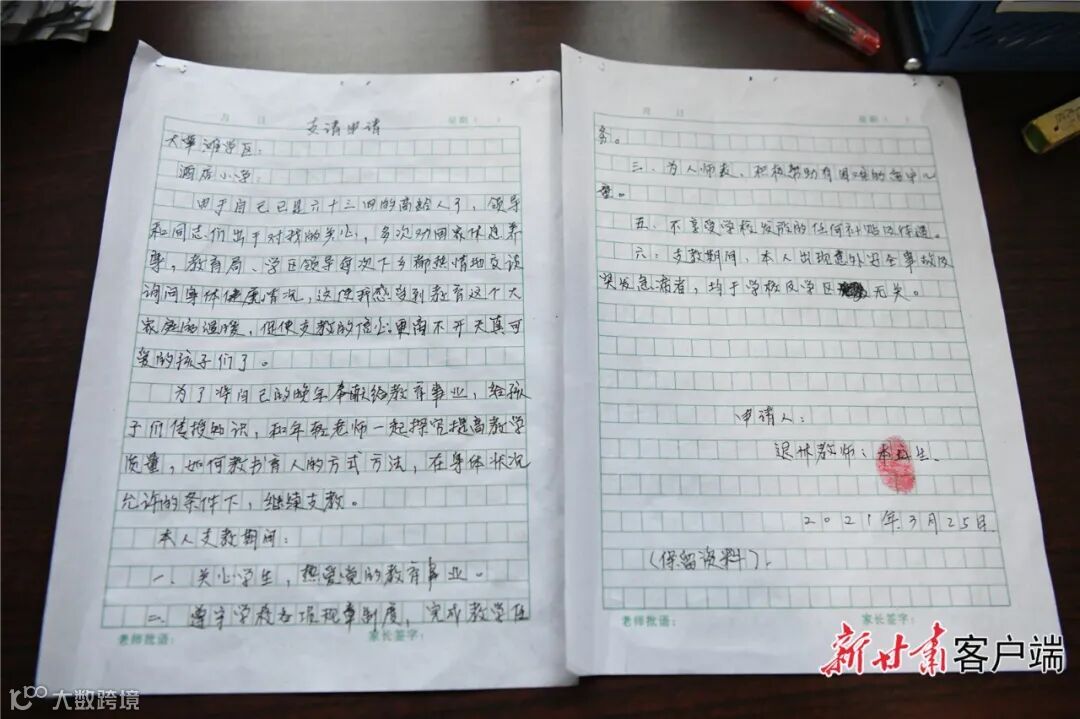 月 日 星期（ ）
支请申请
大草滩学区：
酒店小学：
由于自己已是六十三四的高龄人了，领导
和同志们出于对我的关心，多次动员家休息养
尊，教育局、学区领导每次下乡都热情地交谈
询问身体健康情况，这使我感受到教育这个大
家庭的温暖，促使支教的信心更离不开天真可
爱的孩子们了。
为了将自己的晚年奉献给教育事业，给孩
子们传授知识，和年轻老师一起探究提高教学
质量，如何教书育人的方式方法，在身体状况
允许的条件下，继续支教。
本人支教期间：
一、关心学生，热爱党的教育事业。
二、遵守学校各项规章制度，完成教学任
老师批语： 家长签字：
月 日 星期（ ）
务。
三、为人师表，积极帮助有困难的留守儿
童。
五、不享受学校发放的任何补贴及待遇。
六、支教期间，本人出现意外安全事故及
突发急病者，均于学校及学区无关。
申请人：
退休教师：生
2021年3月25日
（保留资料）、
老师批语： 家长签字：
新甘肃客户端
大数跨境